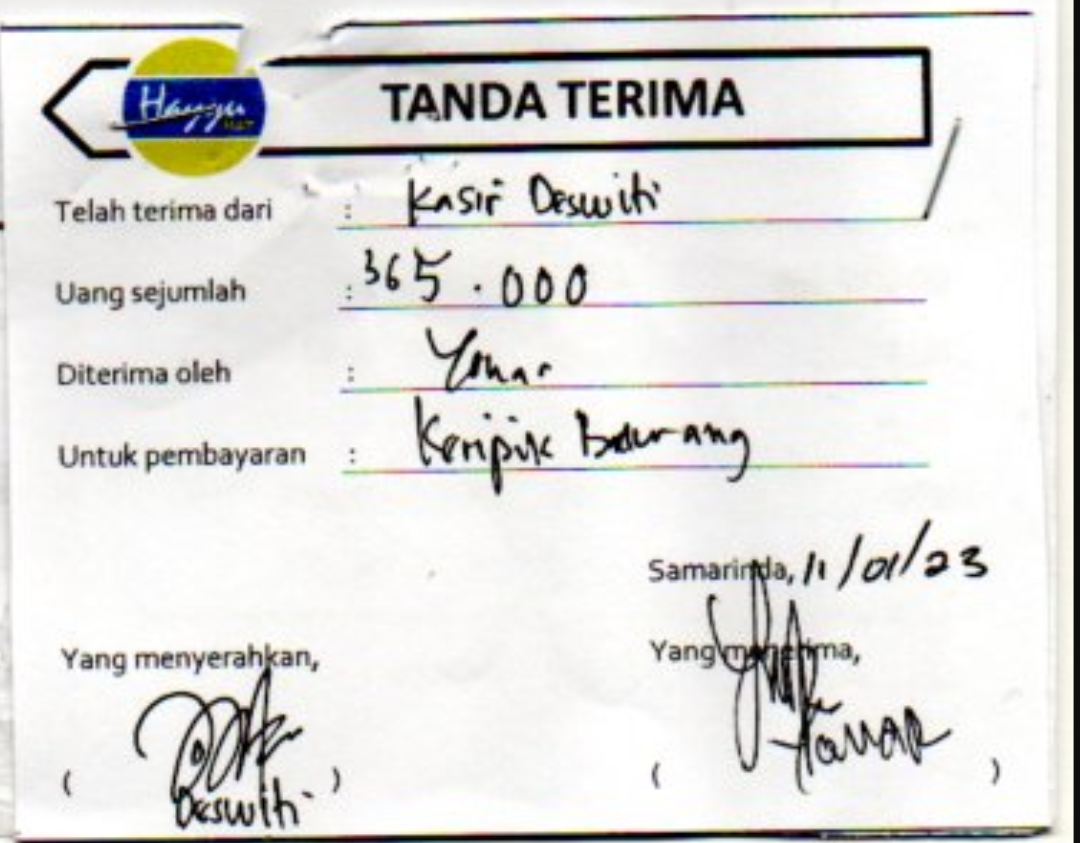 Hayyu
TANDA TERIMA
Telah terima dari : Kasir Deswiti
Uang sejumlah : 365.000
Diterima oleh :
Untuk pembayaran : Keripik
Samarinda, 11/01/23
Yang menyerahkan,
Yang menerima,
( Deswiti )
( )